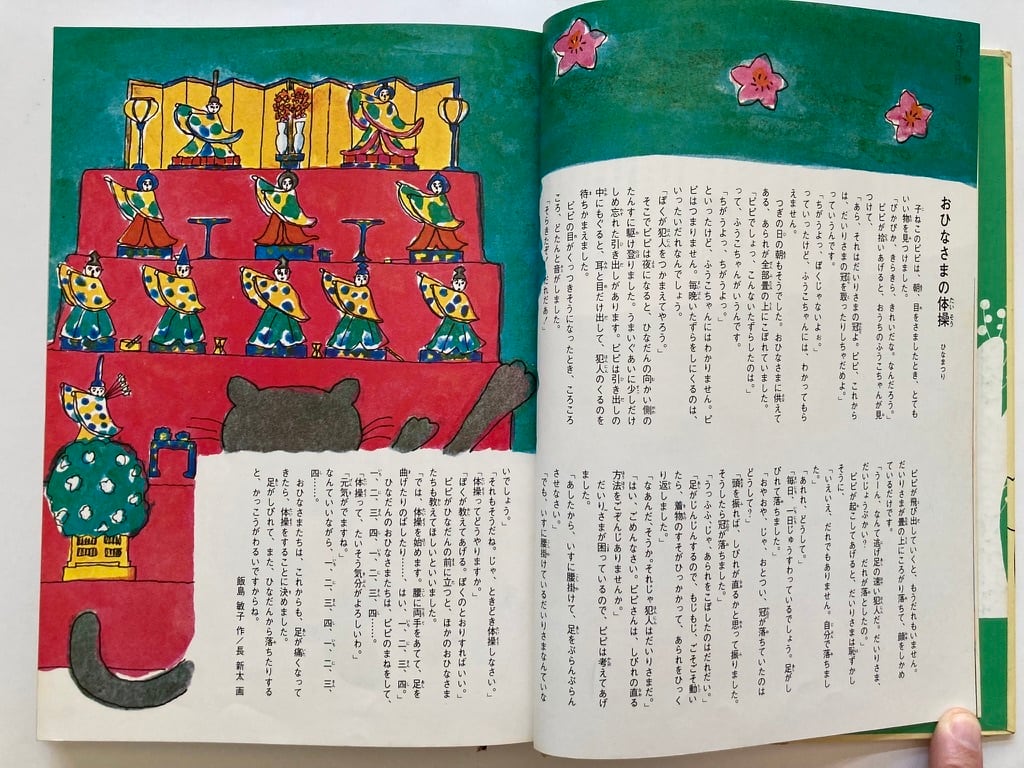 おひなさまの体操
ひなまつり
子ねこのピピは、朝、目をさましたとき、とても
いい物を見つけました。
「ぴかぴか、きらきら、きれいだな。なんだろう。」
ピピが拾いあげると、おうちのふうこちゃんが見
つけて、
「あら、それはだいりさまの冠よ。ピピ、これから
は、だいりさまの冠を取ったりしちゃだめよ。」
っていうんです。
「ちがうよっ、ぼくじゃないよぉ。」
っていったけど、ふうこちゃんには、わかってもら
えません。
つぎの日の朝もそうでした。おひなさまに供えて
ある、あられが全部畳の上にこぼれていました。
「ピピでしょっ、こんないたずらしたのは。」
って、ふうこちゃんがいうんです。
「ちがうよっ、ちがうよっ。」
といったけど、ふうこちゃんにはわかりません。ピ
ピはつまりません。毎晩いたずらをしにくるのは、
いったいだれなんでしょう。
「ぼくが犯人をつかまえてやろう。」
そこでピピは夜になると、ひなだんの向かい側の
たんすに駆け登りました。うまいぐあいに少しだけ
しめ忘れた引き出しがあります。ピピは引き出しの
中にもぐると、耳と目だけ出して、犯人のくるのを
待ちかまえました。
ピピの目がくっつきそうになったとき、ころころ
ころ、どたんと音がしました。
「そらきたぞっ、だれだあ！」
ピピが飛び出していくと、もうだれもいません。
だいりさまが畳の上にころがり落ちて、顔をしかめ
ているだけです。
「うーん、なんて逃げ足の速い犯人だ。だいりさま、
だいじょうぶかい？だれが落としたの。」
ピピが起こしてあげると、だいりさまは恥ずかし
そうに、
「いえいえ、だれでもありません。自分で落ちまし
た。」
「あれれ、どうして。」
「毎日、一日じゅうすわっているでしょう。足がし
びれて落ちました。」
「おやおや、じゃ、おとつい、冠が落ちていたのは
どうして？」
「頭を振れば、しびれが直るかと思って振りました。
そうしたら冠が落ちました。」
「うっふふ、じゃ、あられをこぼしたのはだれだい。」
「足がじんじんするので、もじもじ、ごそごそ動い
たら、着物のすそがひっかかって、あられをひっく
り返しました。」
「なあんだ、そうか。それじゃ犯人はだいりさまだ。」
「はい、ごめんなさい。ピピさんは、しびれの直る
方法をごぞんじありませんか。」
だいりさまが困っているので、ピピは考えてあげ
ました。
「あしたから、いすに腰掛けて、足をぶらんぶらん
させなさい。」
「でも、いすに腰掛けているだいりさまなんていな
いでしょう。」
「それもそうだね。じゃ、ときどき体操しなさい。」
「体操ってどうやりますか。」
「ぼくが教えてあげる。ぼくのとおりすればいい。」
ピピがひなだんの前に立つと、ほかのおひなさま
たちも教えてほしいといいました。
「では、体操を始めます。腰に両手をあてて、足を
曲げたりのばしたり……、はい、一、二、三、四。」
ひなだんのおひなさまたちは、ピピのまねをして、
一、二、三、四、一、二、三、四……。
「体操って、たいそう気分がよろしいわ。」
「元気がでますね。」
なんていいながら、一、二、三、四、一、二、三、
四……。
おひなさまたちは、これからも、足が痛くなって
きたら、体操をすることに決めました。
足がしびれて、また、ひなだんから落ちたりする
と、かっこうがわるいですからね。
飯島 敏子 作／長 新太 画